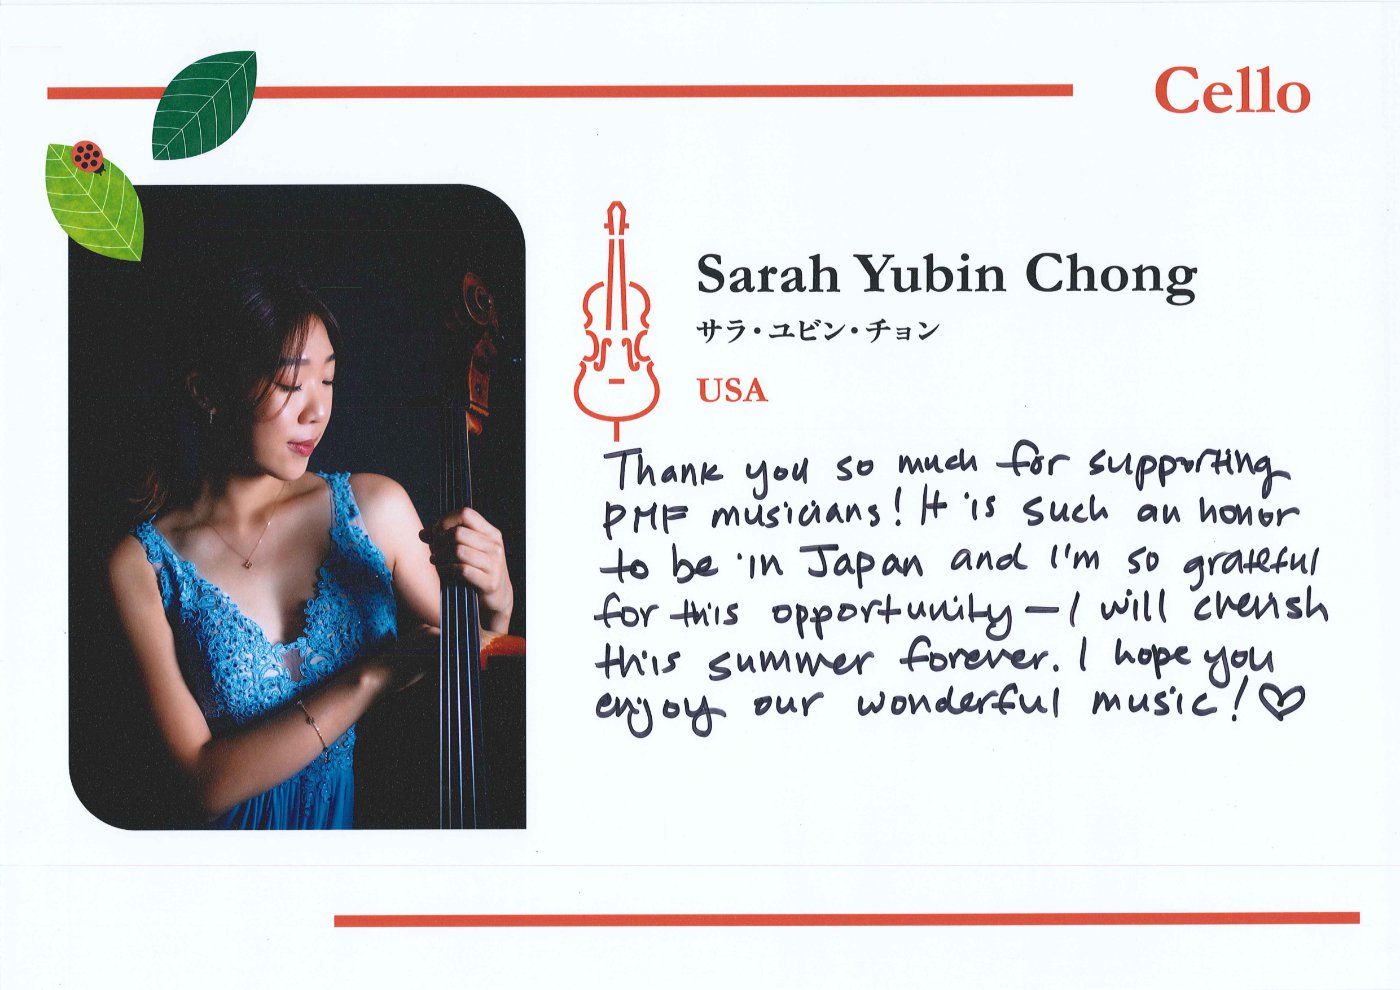 Cello
Sarah Yubin Chong
サラ・ユビン・チョン
USA
Thank you so much for supporting
PMF musicians! It is such an honor
to be in Japan and I'm so grateful
for this opportunity — I will cherish
this summer forever. I hope you
enjoy our wonderful music! ♡